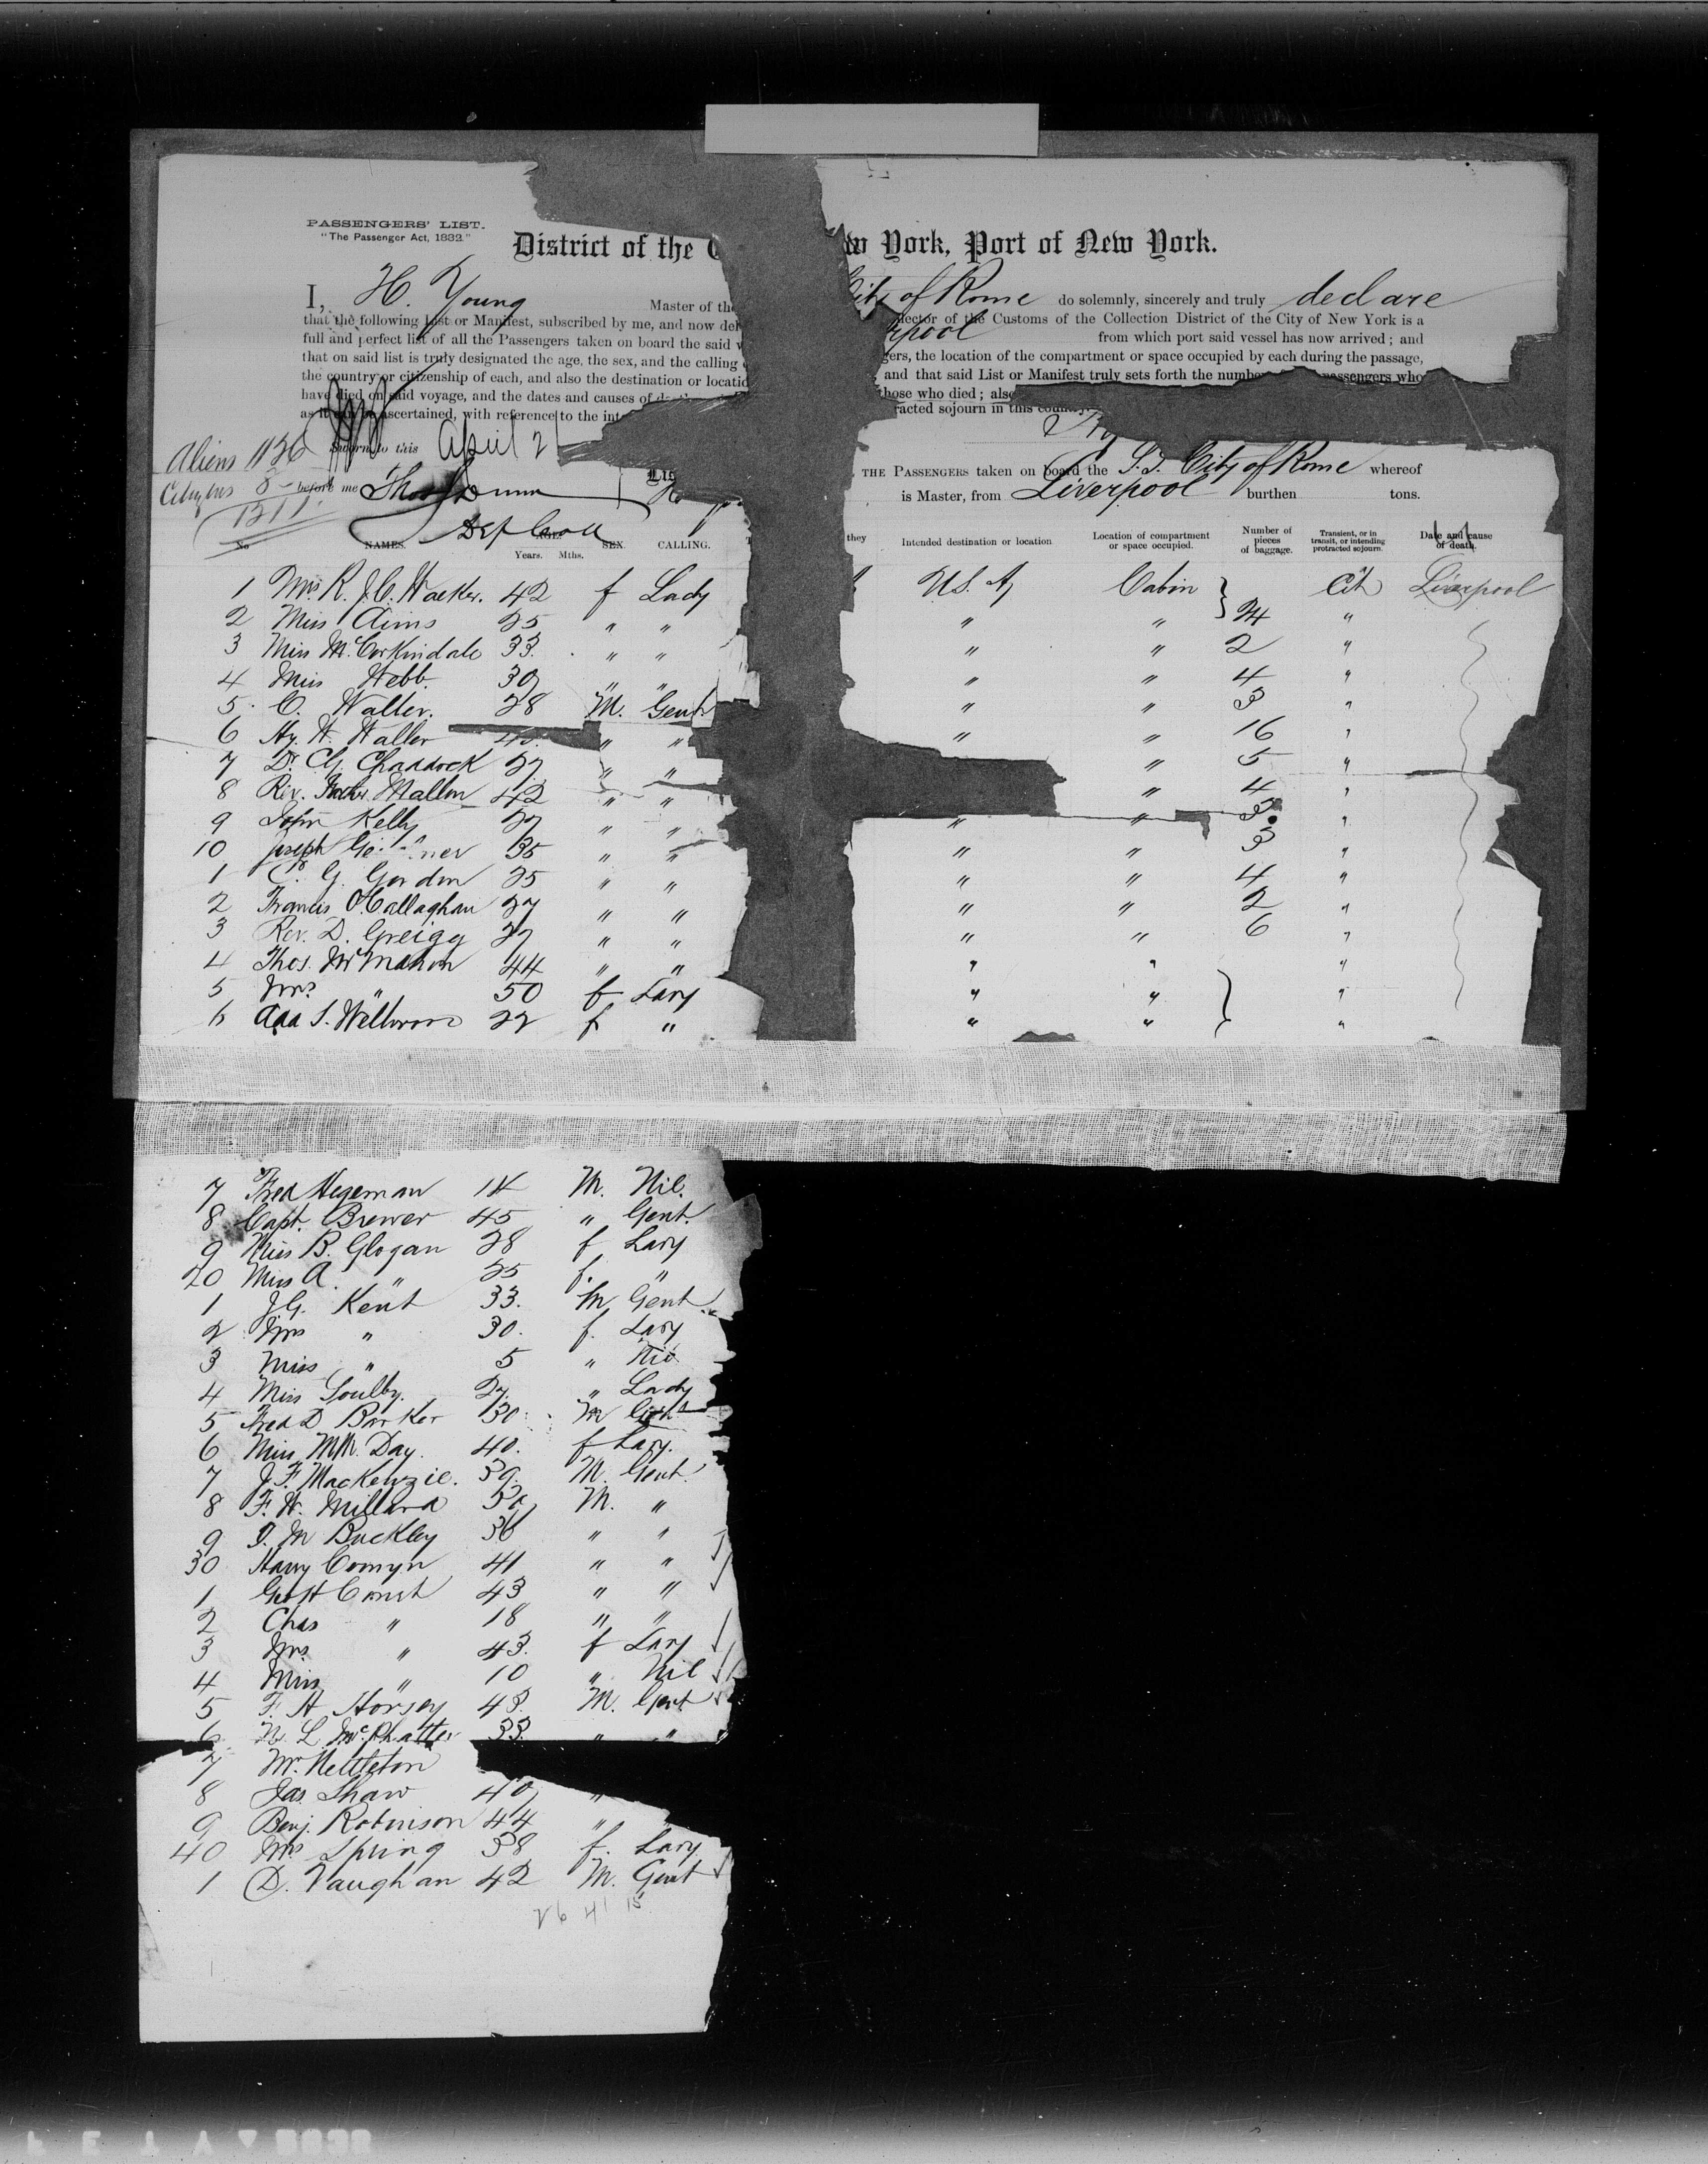 PASSENGERS' LIST.
"The Passenger Act, 1882."
District of the C w York, Port of New York.
I, H. Young Master of the City of Rome do solemnly, sincerely and truly declare
that the following List or Manifest, subscribed by me, and now del llector of the Customs of the Collection District of the City of New York is a
full and perfect list of all the Passengers taken on board the said v rpool from which port said vessel has now arrived; and
that on said list is truly designated the age, the sex, and the calling gers, the location of the compartment or space occupied by each during the passage,
the country or citizenship of each, and also the destination or locatio and that said List or Manifest truly sets forth the number passengers who
have died on said voyage, and the dates and causes of death those who died; also
as it can be ascertained, with reference to the int racted sojourn in this country.
Sworn to this April 2
Aliens 1136
before me Thos Dunn
Dep Coll
THE PASSENGERS taken on board the S.S. City of Rome whereof
is Master, from Liverpool burthen tons.
No NAMES. AGE Years. Mths. SEX. CALLING. they Intended destination or location Location of compartment or space occupied. Number of pieces of baggage. Transient, or in transit, or intending protracted sojourn. Date and cause of death.
1 Mrs R. J. C. Walker. 42 f Lady U.S. A Cabin } Cit Liverpool
2 Miss Aims 25 " " " " 24 "
3 Miss McCorkindale 33. " " " " 2 "
4 Miss Webb. 30 " " " " 4 "
5 C. Walter. 28 M. Gent " " 3 "
6 Hy. W. Waller 40. " " " " 16 "
7 Dr. C.G. Chaddock 27. " " " 5 "
8 Rev. Father Mallon 42 " " " 4 "
9 John Kelly 27 " " " " 3. "
10 Joseph ner 35 " " " " 3 "
1 C. G. Gordon 25 " " " " 4 "
2 Francis O'Callaghan 27 " " " " 2 "
3 Rev. D. Greigg 27 " " " " 6 "
4 Thos. McMahon 44 " " " " "
5 Mrs " 50 f Lady " " } "
6 Ada S. Wellwood 22 f " " " "
7 Fred Hegeman 14 M. Nil.
8 Capt. Brewer 45 " Gent.
9 Miss B. Glogan 28 f Lady
20 Miss A. " 25 f. "
1 J.G. Kent 33. M Gent
2 Mrs " 30. f. Lady
3 Miss " 5 " Nil
4 Miss Soulby. 27. " Lady
5 Fred D Barker 30. M Gent
6 Miss M.M. Day. 40. f Lady.
7 J. F. MacKenzie. 39. M. Gent.
8 F. W. Millard M. "
9 D. M Buckley 36 " "
30 Harry Comyn 41 " "
1 Geo H Const 43 " "
2 Chas " 18 " "
3 Mrs. " 43. f Lady
4 Miss " 10 " Nil
5 F. A Horsey 43. M. Gent
6 N. L. McPhatter 33. " "
7 Mr. Nettleton
8 Jas. Shaw 40 "
9 Benj. Robinson 44 "
40 Mrs Spring 38 f. Lady
1 D. Vaughan 42 M. Gent
26 41 15